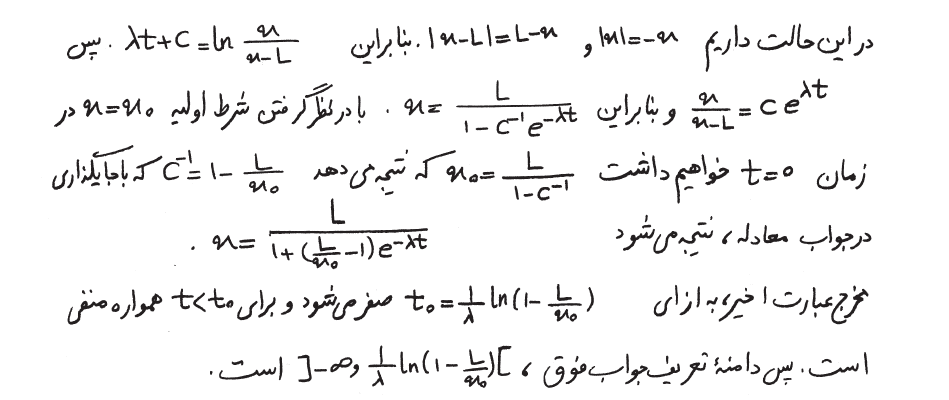 در این حالت داریم |x|=-x و |x-L|=L-x. بنابراین λt+C=ln x/(x-L). پس
x/(x-L) = C e^{λt} و بنابراین x = L/(1-C^{-1}e^{-λt}). با در نظر گرفتن شرط اولیه x=x₀ در
زمان t=0 خواهیم داشت x₀ = L/(1-C^{-1}) که نتیجه می دهد C^{-1} = 1 - L/x₀ که با جایگذاری
در جواب معادله، نتیجه می شود x = L/(1+(L/x₀ -1)e^{-λt}).
مخرج عبارت اخیر، به ازای t₀ = 1/λ ln(1 - L/x₀) صفر می شود و برای t<t₀ همواره منفی
است. پس دامنهٔ تعریف جواب فوق، ]-∞ و 1/λ ln(1 - L/x₀)[ است.